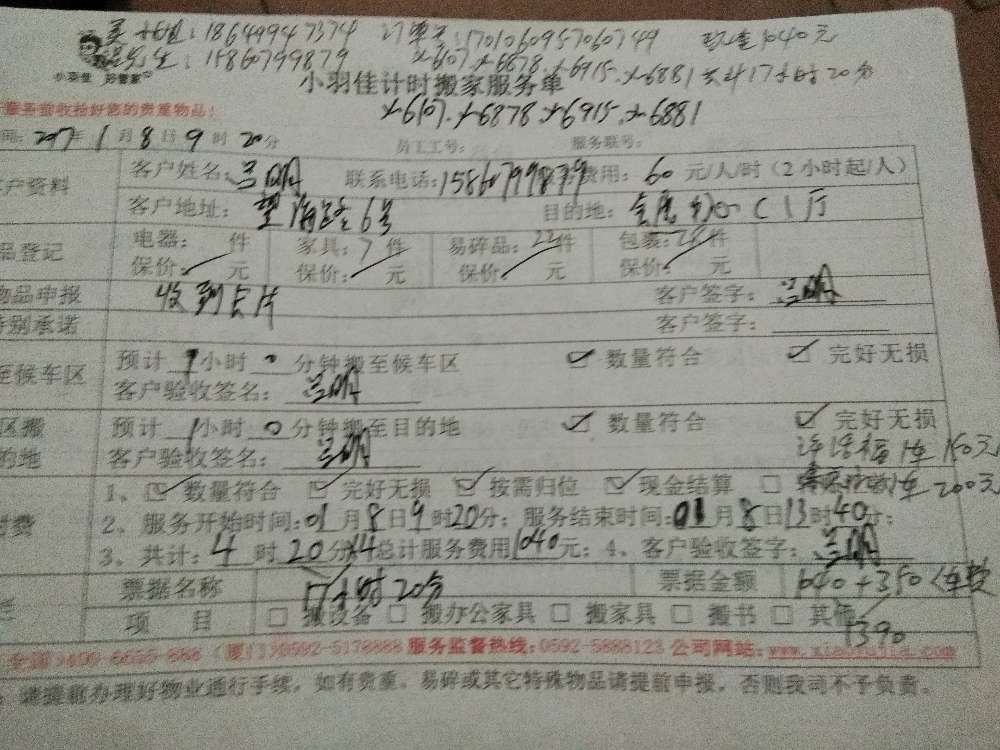 小姐:18649947374 订单号:17010609570607 49 现金1040元
先生:15860799879 x6107.x6878.x6915.x6881共计17小时20分
小羽佳 好管家
小羽佳计时搬家服务单
服务验收拾好您的贵重物品! x6107.x6878.x6915.x6881
间:2017年1月8日9时20分 员工工号: 服务联号:
户资料 客户姓名: 联系电话:15860799879 费用:60元/人/时(2小时起/人)
客户地址:望海路6号 目的地:
品登记 电器: 件 家具:7件 易碎品:22件 包装: 件
保价: 元 保价: 元 保价: 元 保价: 元
物品申报 收到卡片 客户签字:
特别承诺 客户签字:
至候车区 预计1小时0分钟搬至候车区 ☑数量符合 ☑完好无损
客户验收签名:
区搬 预计1小时0分钟搬至目的地 ☑数量符合 ☑完好无损
的地 客户验收签名: 1车150元
付费 1、☑数量符合 ☑完好无损 ☑按需归位 ☑现金结算 □ 1车200元
2、服务开始时间:01月8日9时20分;服务结束时间:01月8日13时40分;
3、共计:4时20分x4总计服务费用1040元;4、客户验收签字:
票据名称 17小时20分 票据金额 1040+350(车费
项 目 □搬设备 □搬办公家具 □搬家具 □搬书 □其他 1390
(厦门)0592-5178888 服务监督热线:0592-5888123 公司网站:www.xiaoyujia.com
请提前办理好物业通行手续,如有贵重、易碎或其它特殊物品请提前申报,否则我司不予负责。